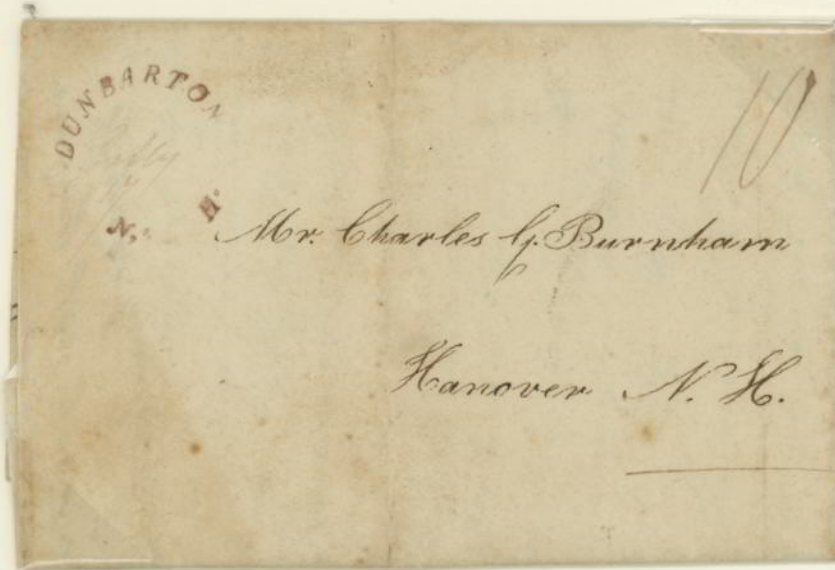 DUNBARTON
10
17
N. H.
Mr. Charles G. Burnham
Hanover N. H.